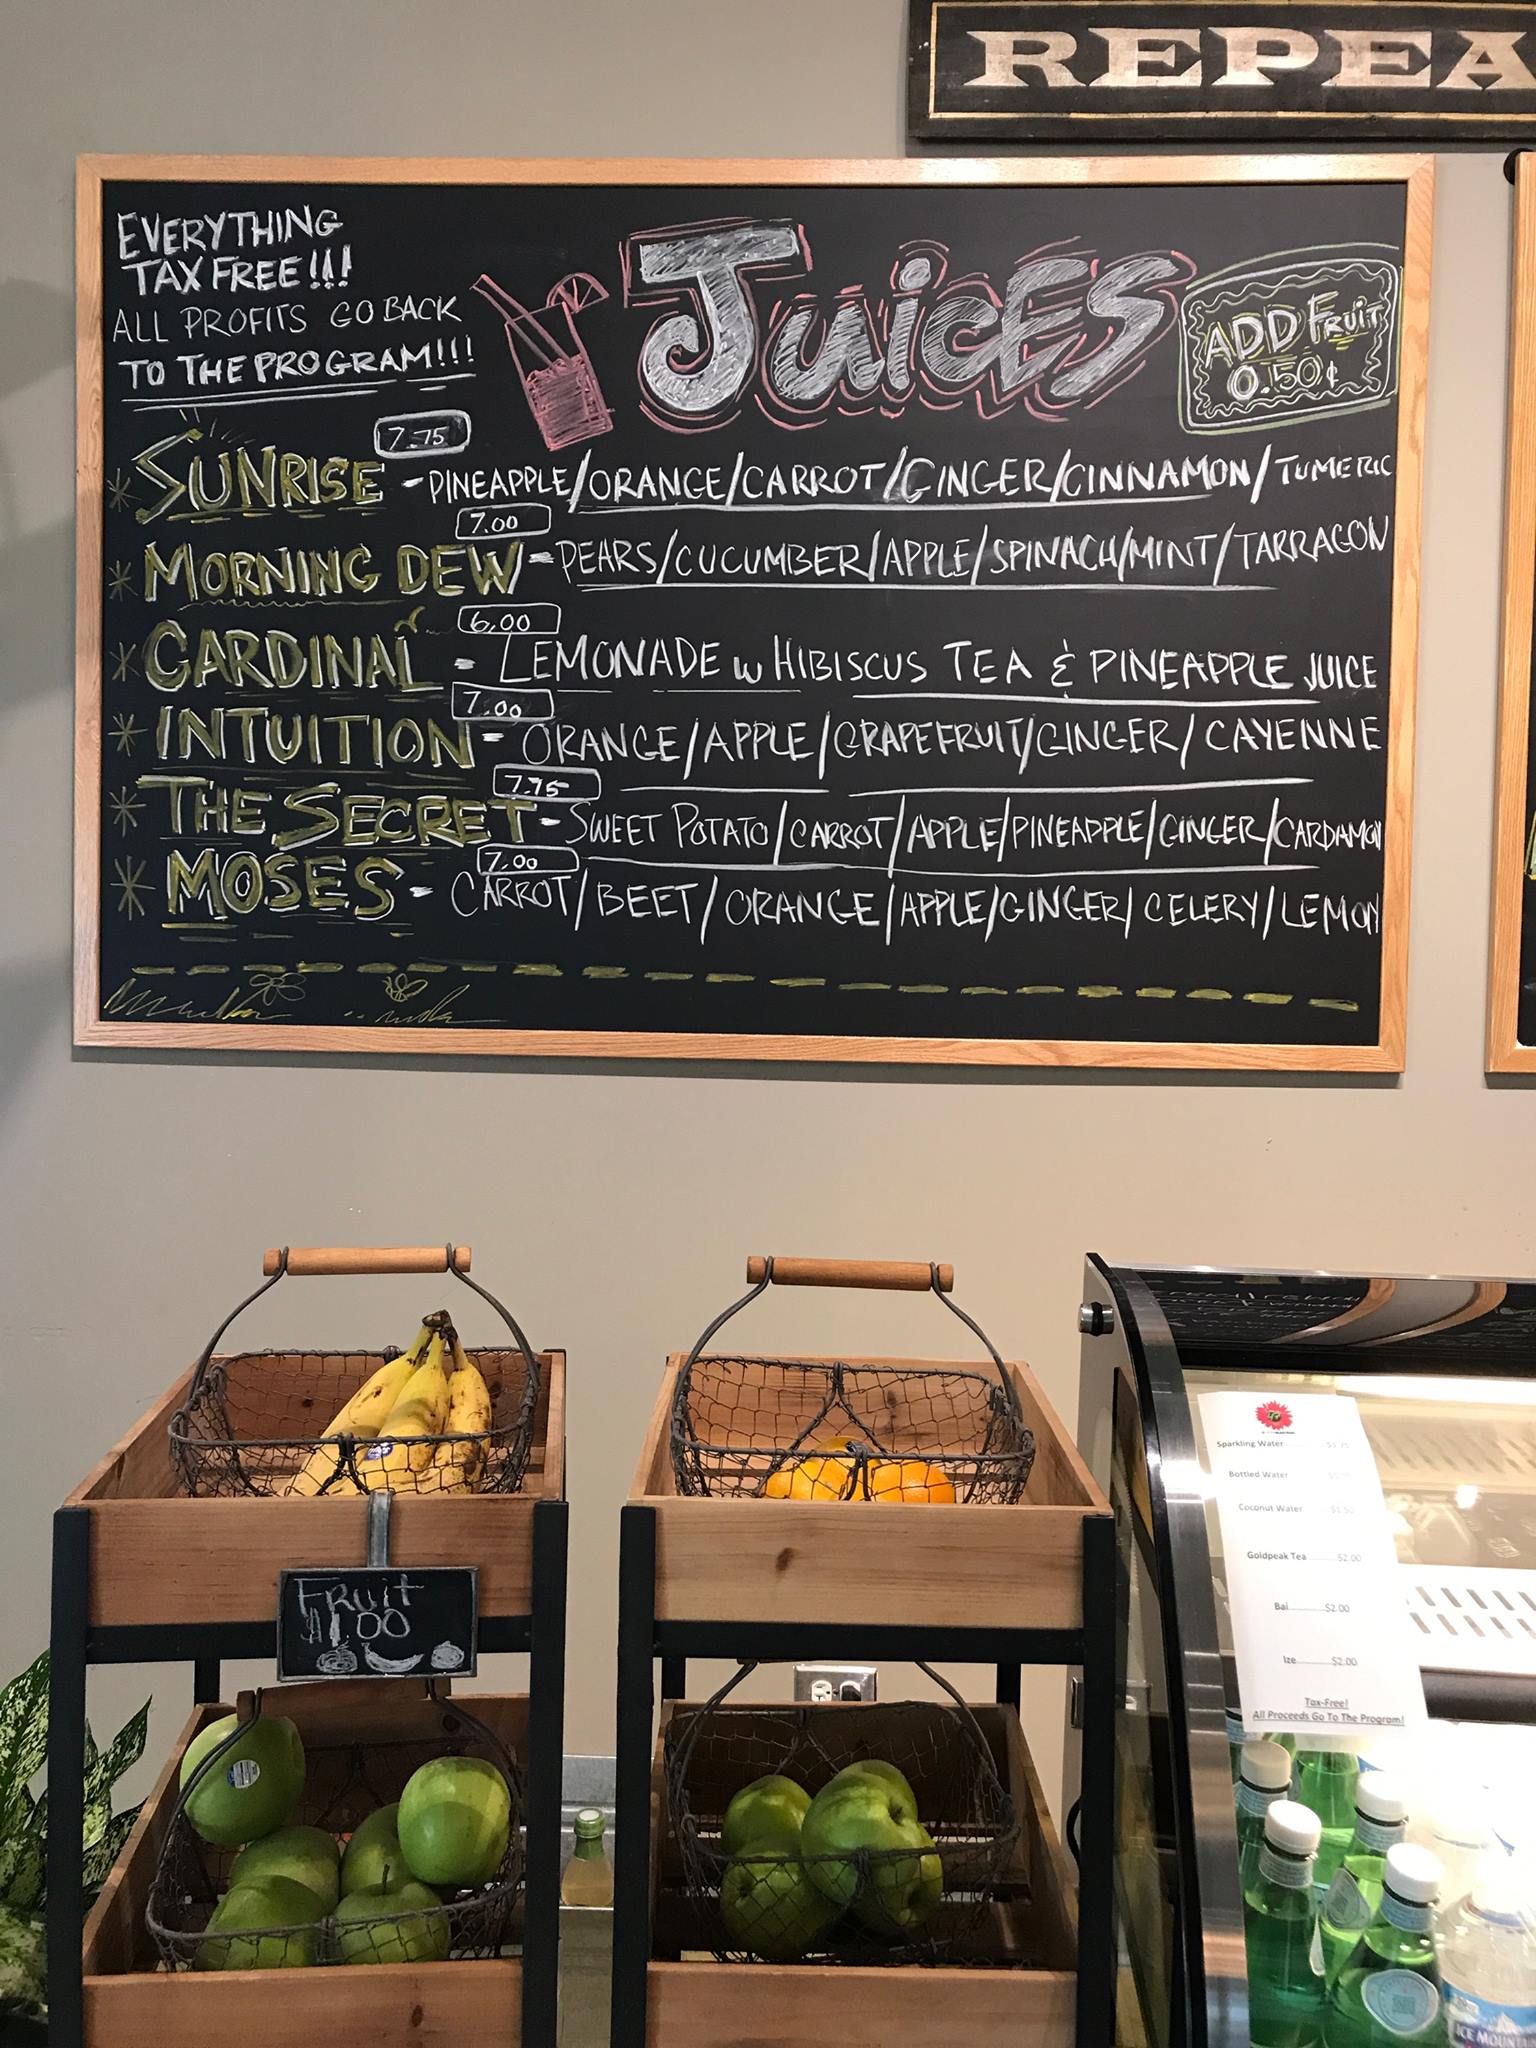 REPEA
EVERYTHING
TAX FREE!!!
ALL PROFITS GO BACK
TO THE PROGRAM!!!
JuicES
ADD FRuiT
0.150¢
7.75
SUNRISE - PINEAPPLE/ORANGE/CARROT/GINGER/CINNAMON/TUMERIC
7.00
MORNING DEW - PEARS/CUCUMBER/APPLE/SPINACH/MINT/TARRAGON
6.00
CARDINAL - LEMONADE w HIBISCUS TEA & PINEAPPLE JUICE
7.00
INTUITION - ORANGE/APPLE/GRAPEFRUIT/GINGER/CAYENNE
7.75
THE SECRET - SWEET POTATO/CARROT/APPLE/PINEAPPLE/GINGER/CARDAMON
7.00
MOSES - CARROT/BEET/ORANGE/APPLE/GINGER/CELERY/LEMON
FRuiT
$1.00
Sparkling Water
Bottled Water
Coconut Water $1.50
Goldpeak Tea $2.00
Bai $2.00
Ize $2.00
Tax-Free!
All Proceeds Go To The Program!
ICE MOUNTAI